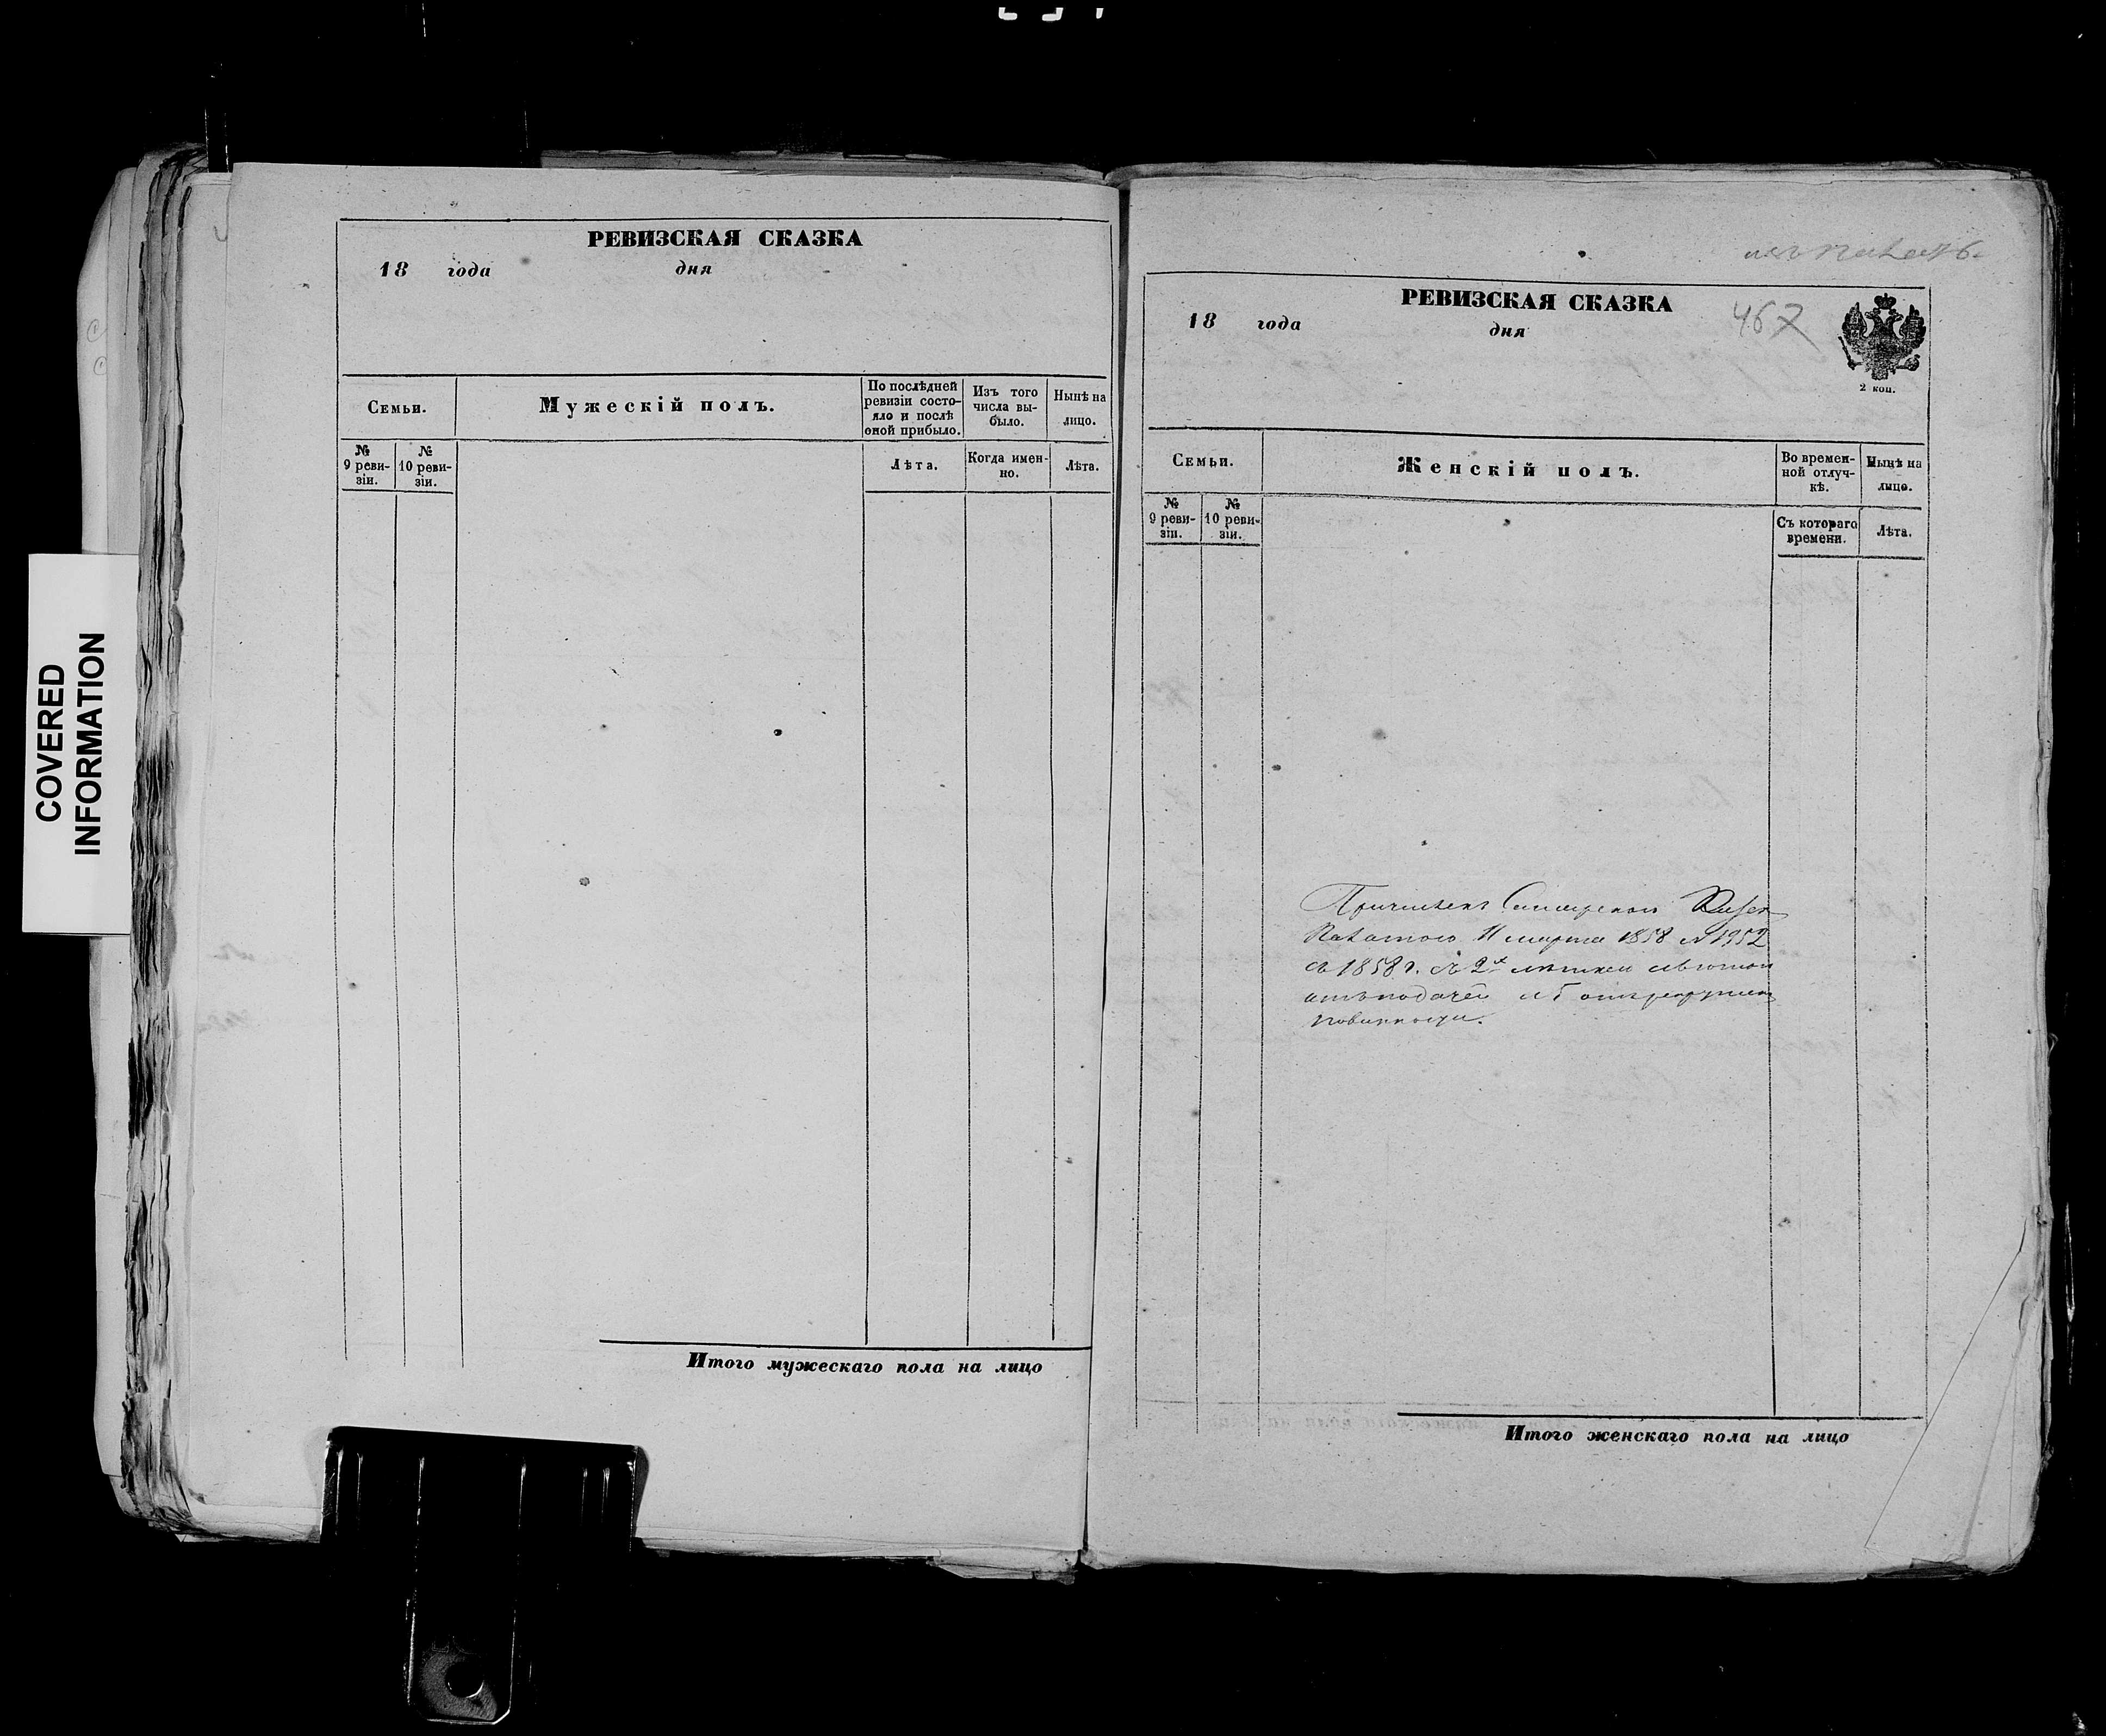 COVERED
INFORMATION
РЕВИЗСКАЯ СКАЗКА
18 года дня
Семьи.
Мужескій полъ.
По послѣдней
ревизіи состо-
яло и послѣ
оной прибыло.
Изъ того
числа вы-
было.
Нынѣ на
лицо.
№
9 реви-
зіи.
№
10 реви-
зіи.
Лѣта.
Когда имен-
но.
Лѣта.
Итого мужескаго пола на лицо
467
РЕВИЗСКАЯ СКАЗКА
18 года дня
2 коп.
Семьи.
Женскій полъ.
Во времен-
ной отлуч-
кѣ.
Нынѣ на
лицо.
№
9 реви-
зіи.
№
10 реви-
зіи.
Съ котораго
времени.
Лѣта.
Причисленъ
Палатою 11 марта 1858 № 1952
съ 1858 г. съ 2х лѣтнею льготою
отъ податей и
повинности.
Итого женскаго пола на лицо